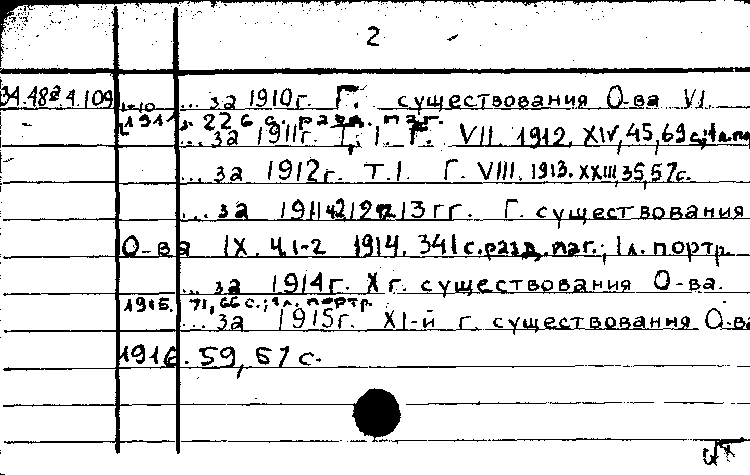 2
34.48 4.109 ... за 1910г. Г. существования О-ва VI.
1911. 226 с. разд. паг.
... за 1911г. Т. I. Г. VII. 1912. XIV, 45, 69 с., 1 л. по
... за 1912г. Т.I. Г. VIII. 1913. XXIII, 35, 57с.
... за 13гг. Г. существования
О-ва IX. Ч.1-2 1914. 341 с. разд. паг.; 1л. портр.
... за 1914г. X г. существования О-ва.
1915. 71, 66 с.; 1л. портр.
... за 1915г. XI-й г. существования О-ва
1916. 59, 57 с.